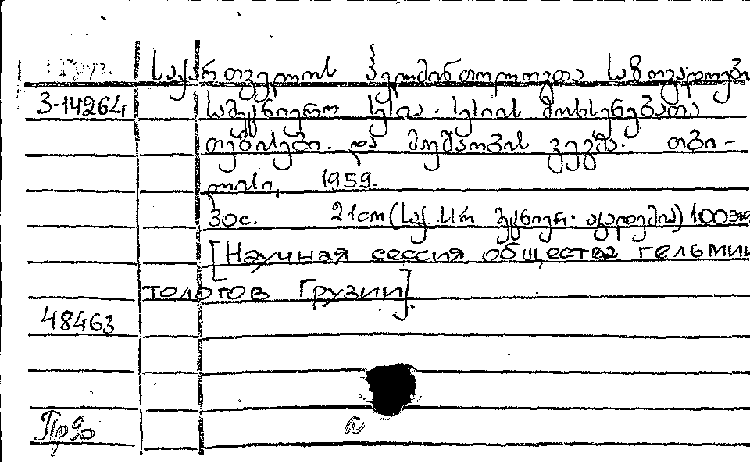 საქართველოს ჰელმინთოლოგთა საზოგადოები
3-14264 სამეცნიერო სესია. სესიის მოხსენებათა
თეზისები და მუშაობის გეგმა. თბი-
ლისი, 1959.
30с. 21cm (საქ. სსრ მეცნიერ. აკადემია) 100экз
[Научная сессия общества гельмин
тологов Грузии].
48463